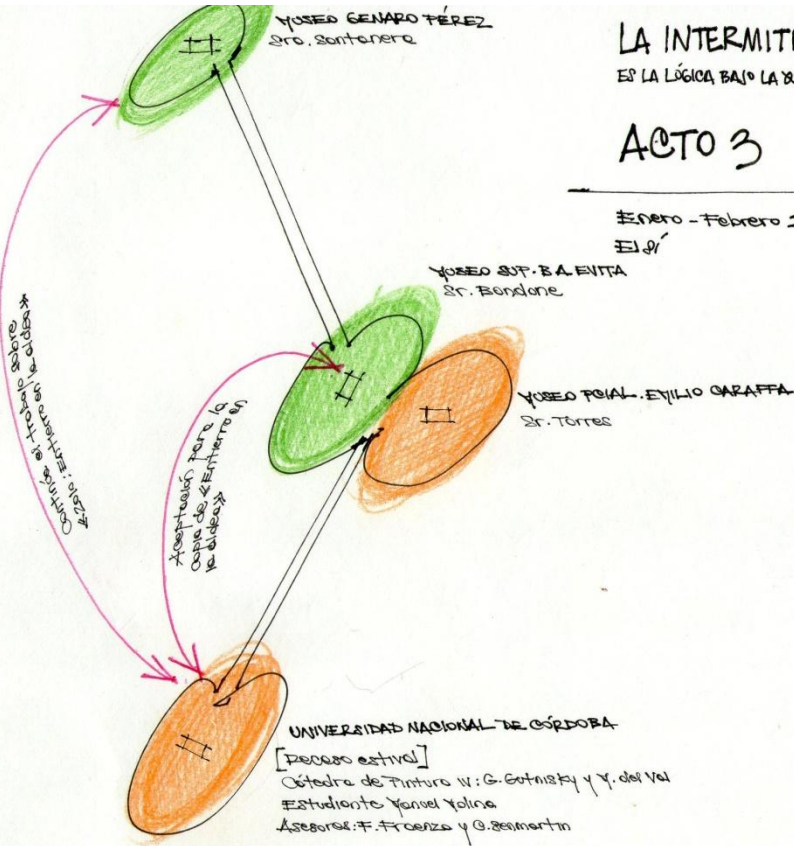 MUSEO GENARO PÉREZ
Sra. Santanera
LA INTERMIT
ES LA LÓGICA BAJO LA
ACTO 3
Enero - Febrero
El sí
MUSEO SUP. B.A. EVITA
Sr. Bondone
MUSEO PCIAL. EMILIO CARAFFA
Sr. Torres
Continúa el trabajo sobre
«2010: Entierro en la aldea»
Aceptación para la
copia de «Entierro en
la aldea»
UNIVERSIDAD NACIONAL DE CÓRDOBA
[Receso estival]
Cátedra de Pintura IV: G. Gutnisky y M. del Val
Estudiante Manuel Molina
Asesores: F. Fraenza y C. Senmartin